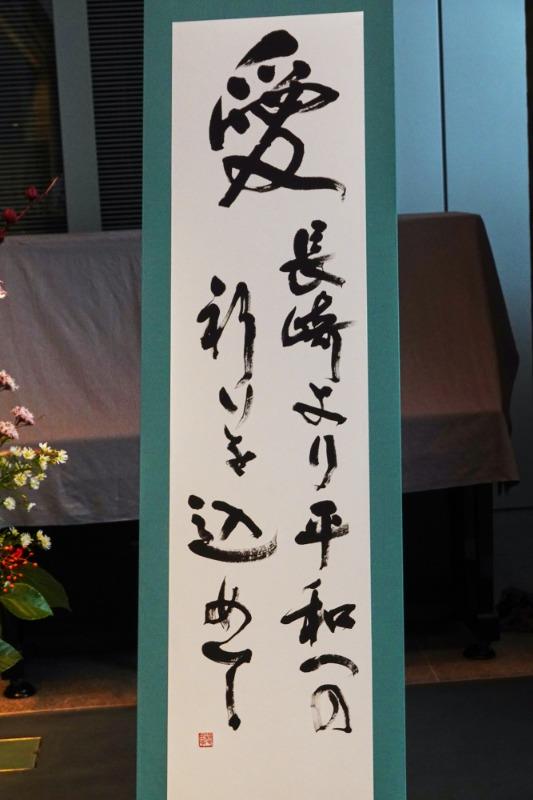 愛
長崎より平和への
祈りを込めて